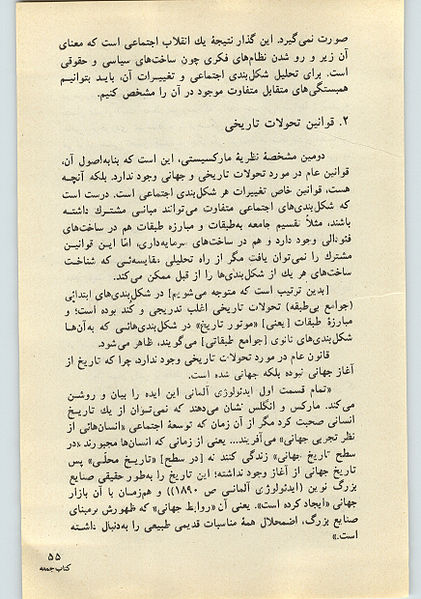 صورت نمی‌گیرد. این گذار نتیجهٔ یك انقلاب اجتماعی است که معنای
آن زیر و رو شدن نظام‌های فکری چون ساخت‌های سیاسی و حقوقی
است. برای تحلیل شکل‌بندی اجتماعی و تغییرات آن، باید بتوانیم
همبستگی‌های متقابل متفاوت موجود در آن را مشخص کنیم.
۲. قوانین تحولات تاریخی
دومین مشخصهٔ نظریهٔ مارکسیستی، این است که بنابه‌اصول آن،
قوانین عام در مورد تحولات تاریخی و جهانی وجود ندارد. بلکه آنچه
هست، قوانین خاص تغییرات هر شکل‌بندی اجتماعی است. درست است
که شکل‌بندی‌های اجتماعی متفاوت می‌توانند مبانی مشترك داشته
باشند، مثلاً تقسیم جامعه به‌طبقات و مبارزه طبقات هم در ساخت‌های
فئودالی وجود دارد و هم در ساخت‌های سرمایه‌داری، امّا این قوانین
مشترك را نمی‌توان یافت مگر از راه تحلیلی مقایسه‌ئی که شناخت
ساخت‌های هر یك از شکل‌بندی‌ها را از قبل ممکن می‌کند.
[بدین ترتیب است که متوجه می‌شویم] در شکل‌بندی‌های ابتدائی
(جوامع بی‌طبقه) تحولات تاریخی اغلب تدریجی و کند بوده است؛ و
مبارزهٔ طبقات [یعنی] «موتور تاریخ» در شکل‌بندی‌هائی که به‌آن‌ها
شکل‌بندی‌های ثانوی [جوامع طبقاتی] می‌گویند، ظاهر می‌شود.
قانون عام در مورد تحولات تاریخی وجود ندارد، چرا که تاریخ از
آغاز جهانی نبوده بلکه جهانی شده است.
«تمام قسمت اول ایدئولوژی آلمانی این ایده را بیان و روشن
می‌کند. مارکس و انگلس نشان می‌دهند که نمی‌توان از یك تاریخ
انسانی صحبت کرد مگر از آن زمان که توسعهٔ اجتماعی «انسان‌هائی از
نظر تجربی جهانی» می‌آفریند... یعنی از زمانی که انسان‌ها مجبورند «در
سطح تاریخ جهانی» زندگی کنند نه [در سطح] «تاریخ محلّی» پس
تاریخ جهانی از آغاز وجود نداشته؛ این تاریخ را به‌طور حقیقی صنایع
بزرگ نوین (ایدئولوژی آلمانی ص ۱۸۹۰)) و هم‌زمان با آن بازار
جهانی «ایجاد کرده است». یعنی آن «روابط جهانی» که ظهورش برمبنای
صنایع بزرگ، اضمحلال همهٔ مناسبات قدیمی طبیعی را به‌دنبال داشته
است.»
۵۵
کتاب جمعه